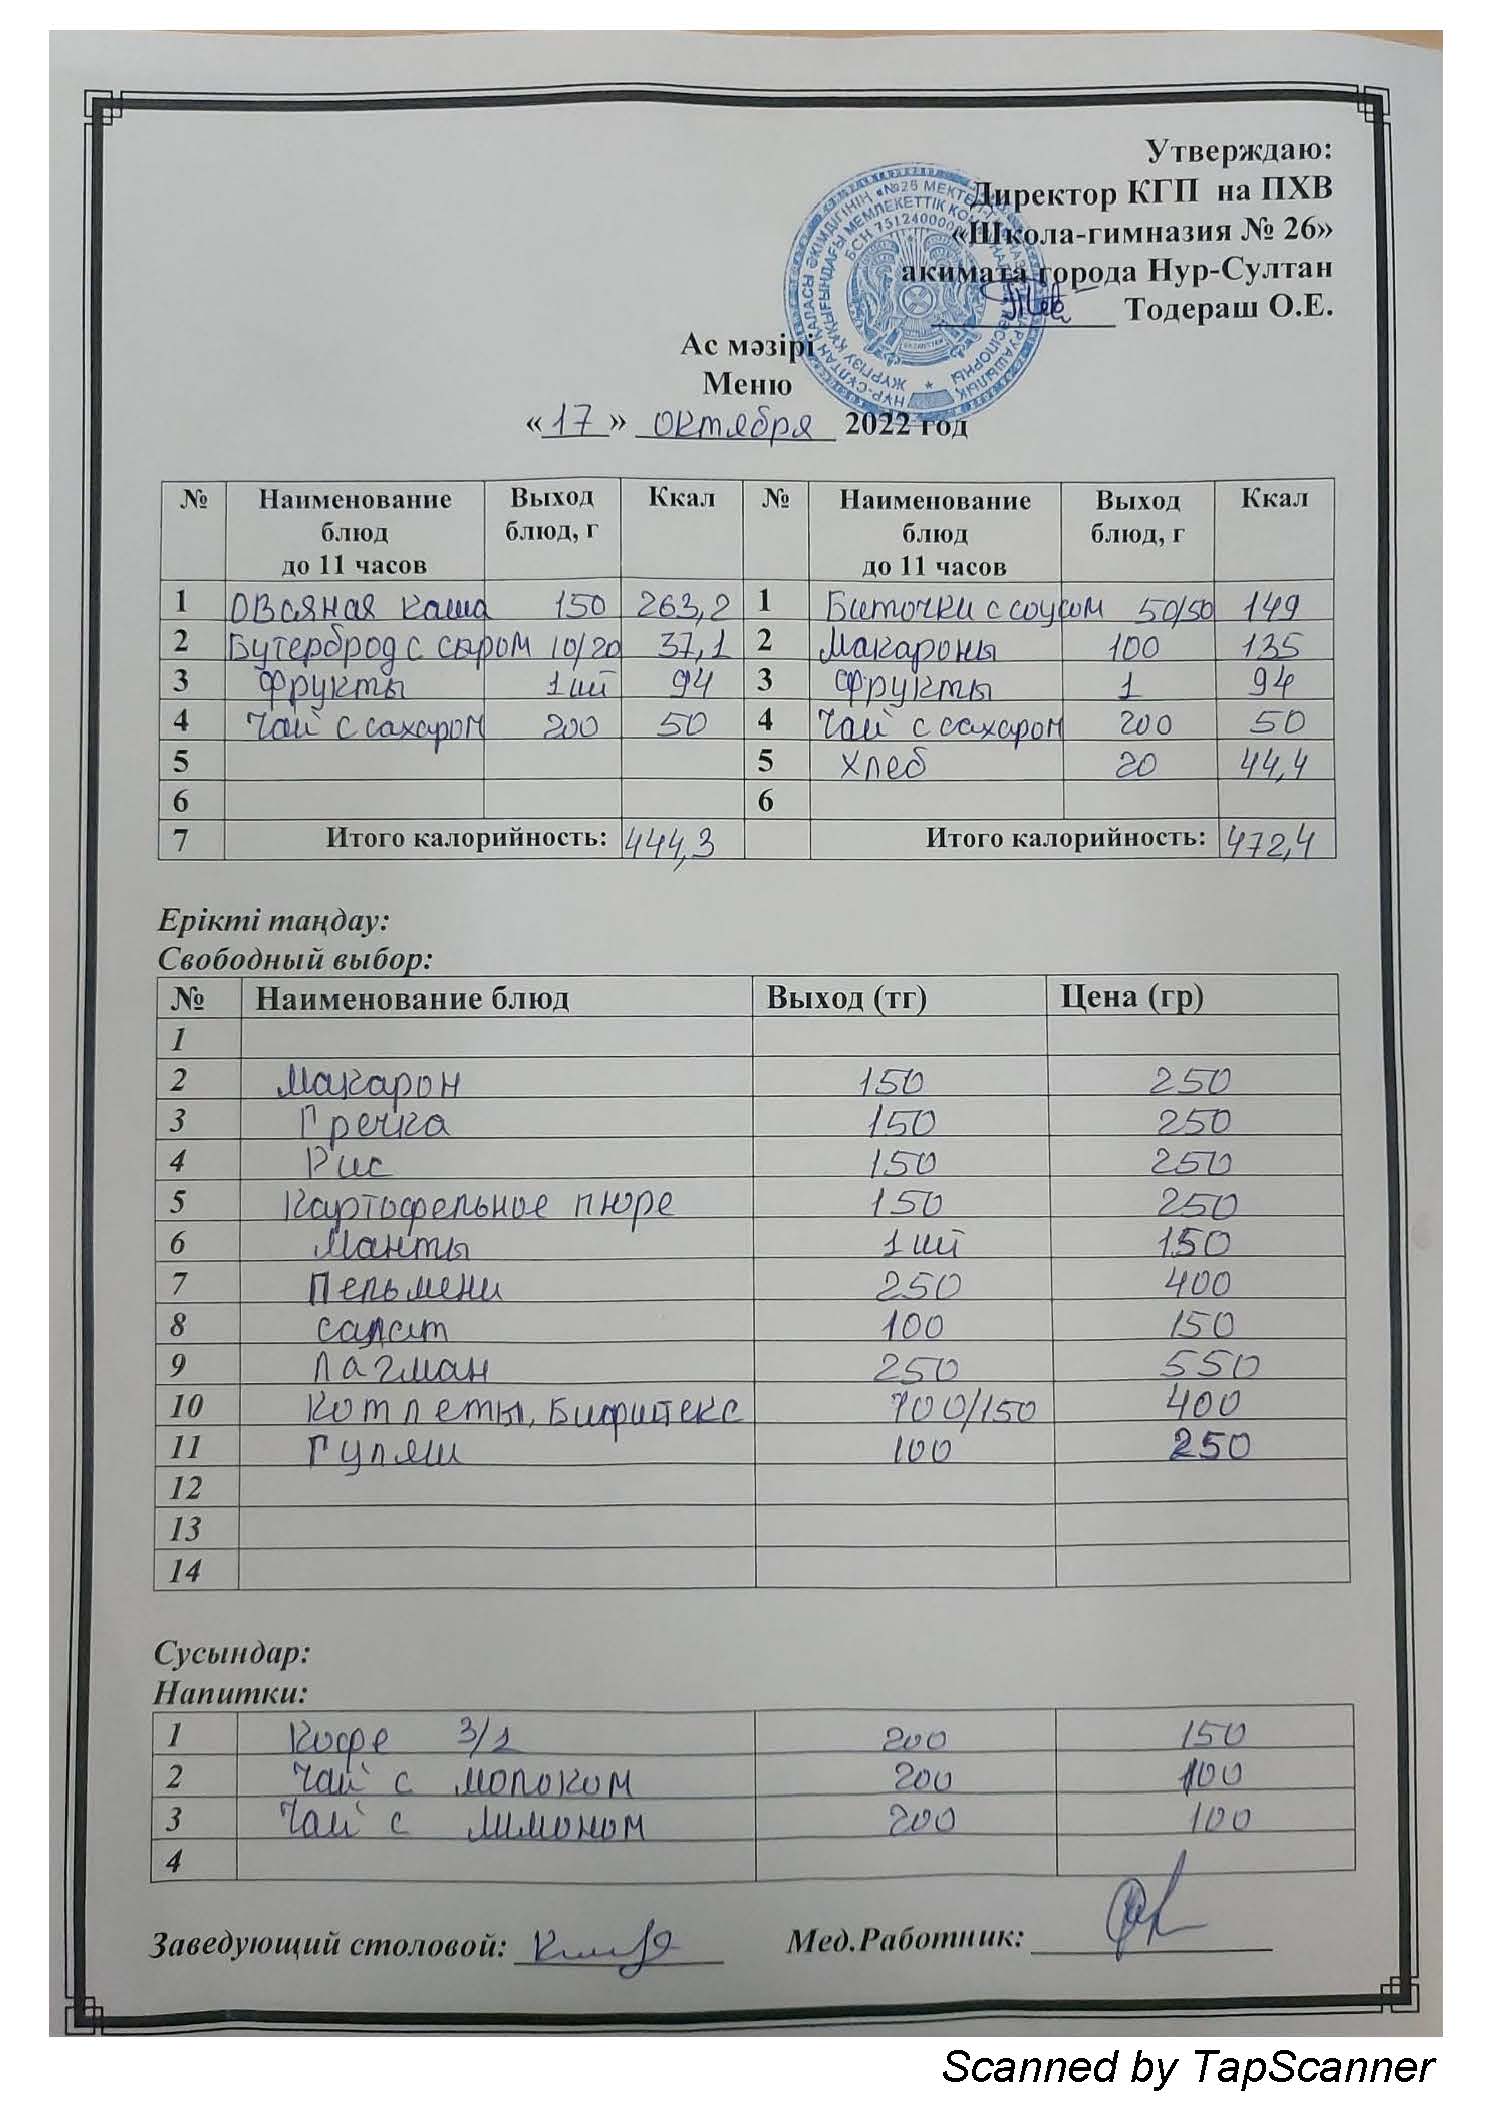 Утверждаю:
Директор КГП на ПХВ
«Школа-гимназия № 26»
акимата города Нур-Султан
Тодераш О.Е.
Ас мәзірі
Меню
«17» октября 2022 год
№ Наименование блюд до 11 часов Выход блюд, г Ккал № Наименование блюд до 11 часов Выход блюд, г Ккал
1 Овсяная каша 150 263,2 1 Биточки с соусом 50/50 149
2 Бутерброд с сыром 10/20 37,1 2 Макароны 100 135
3 Фрукты 1 шт 94 3 Фрукты 1 94
4 Чай с сахаром 200 50 4 Чай с сахаром 200 50
5 5 Хлеб 20 44,4
6 6
7 Итого калорийность: 444,3 Итого калорийность: 472,4
Ерікті таңдау:
Свободный выбор:
№ Наименование блюд Выход (тг) Цена (гр)
1
2 Макарон 150 250
3 Гречка 150 250
4 Рис 150 250
5 Картофельное пюре 150 250
6 Манты 1 шт 150
7 Пельмени 250 400
8 салат 100 150
9 Лагман 250 550
10 Котлеты, Бифштекс 100/150 400
11 Гуляш 100 250
12
13
14
Сусындар:
Напитки:
1 Кофе 3/1 200 150
2 Чай с молоком 200 100
3 Чай с лимоном 200 100
4
Заведующий столовой: Мед.Работник:
Scanned by TapScanner